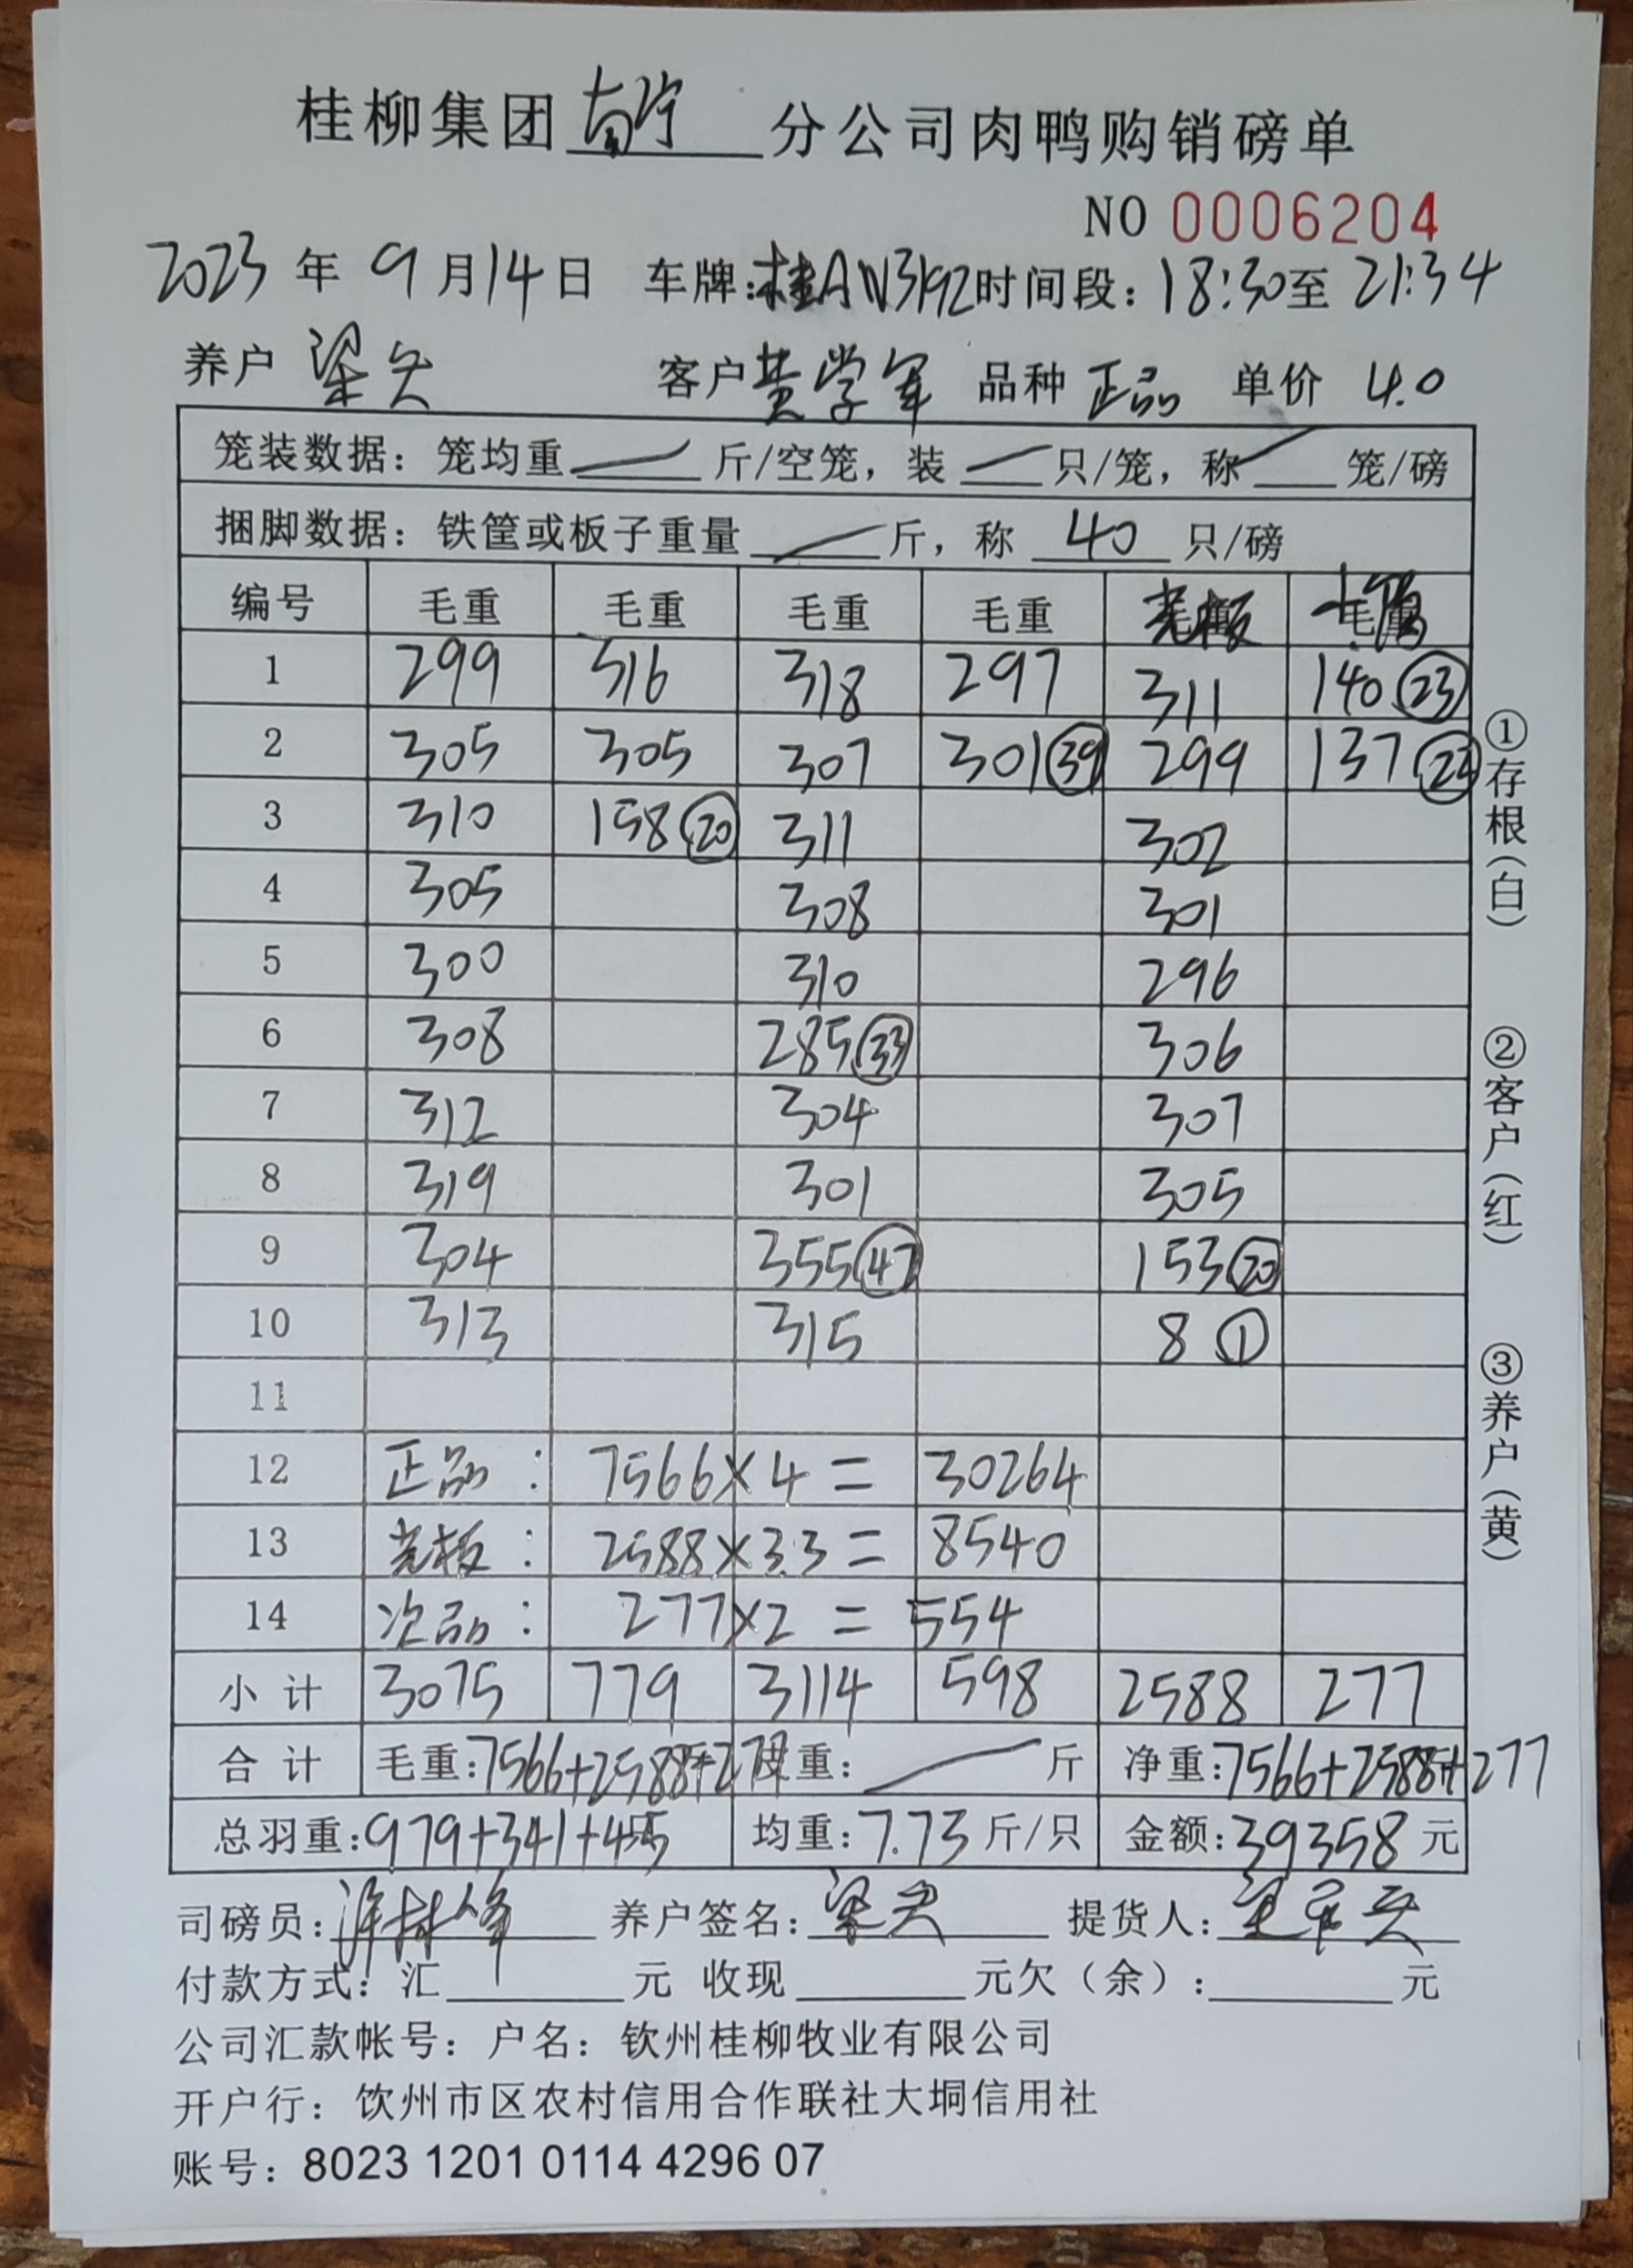 桂柳集团南宁分公司肉鸭购销磅单
NO 0006204
2023年9月14日 车牌:桂AW3192时间段:18:30至21:34
养户 梁 客户黄学军 品种 正品 单价 4.0
笼装数据:笼均重 斤/空笼,装 只/笼,称 笼/磅
捆脚数据:铁筐或板子重量 斤,称 40 只/磅
编号 毛重 毛重 毛重 毛重 光板 毛重
1 299 316 318 297 311 140 23
2 305 305 307 301 39 299 137 22
3 310 158 20 311 302
4 305 308 301
5 300 310 296
6 308 285 33 306
7 312 304 307
8 319 301 305
9 304 355 47 153 20
10 313 315 8 1
11
12 正品:7566×4=30264
13 光板:2588×3.3=8540
14 次品:277×2=554
小计 3075 779 3114 598 2588 277
合计 毛重:7566+2588+277 皮重: 斤 净重:7566+2588+277
总羽重:979+341+45 均重:7.73斤/只 金额:39358元
司磅员: 养户签名:梁 提货人:
付款方式:汇 元 收现 元欠(余): 元
公司汇款帐号:户名:钦州桂柳牧业有限公司
开户行:饮州市区农村信用合作联社大垌信用社
账号:8023 1201 0114 4296 07
①存根(白)
②客户(红)
③养户(黄)